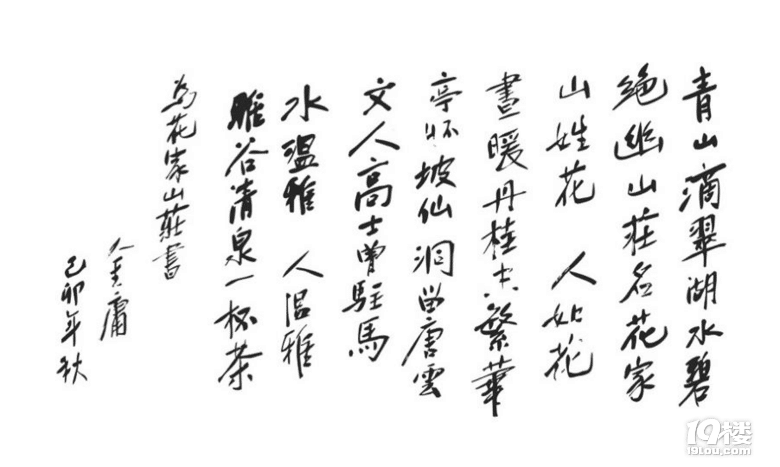 青山滴翠湖水碧
绝幽山莊名花家
山姓花 人如花
晝暖丹桂繁華
亭怀坡仙洞留唐雲
文人高士曾駐馬
水温雅 人温雅
谷清泉一杯茶
為花家山莊書
金庸
己卯年秋
19楼
19lou.com